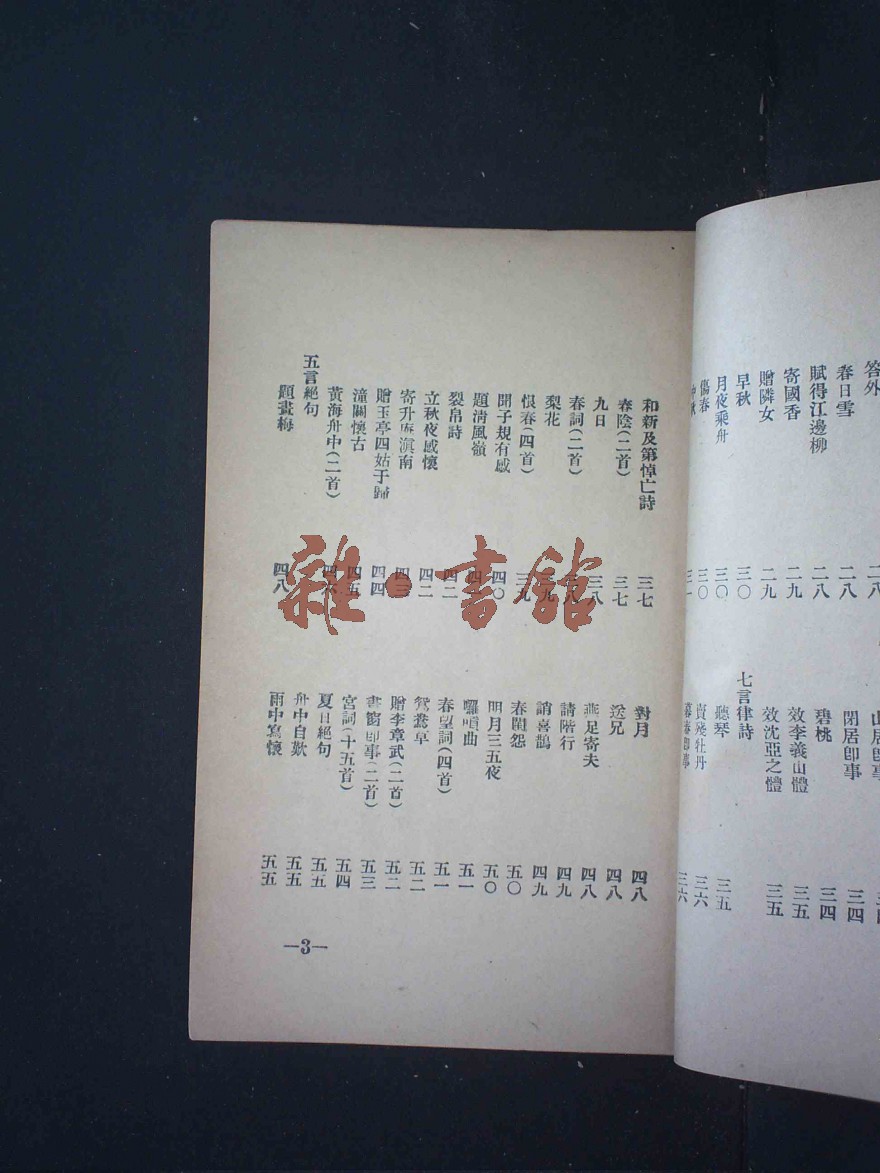 答外 二八
春日雪 二八
賦得江邊柳 二八
寄國香 二九
贈隣女 二九
早秋 三〇
月夜乘舟 三〇
傷春 三〇
中秋 三一
山居卽事
閉居卽事 三四
碧桃 三四
效李義山體 三五
效沈亞之體 三五
七言律詩
聽琴 三五
賣殘牡丹 三六
暮春卽事 三六
和新及第悼亡詩 三七
春陰(二首) 三七
九日 三八
春詞(二首) 三八
梨花 三九
恨春(四首) 三九
開子規有感 四〇
題淸風嶺
裂帛詩 四二
立秋夜感懷 四二
寄升庵滇南 四三
贈玉亭四姑于歸 四四
潼關懷古 四五
黃海舟中(二首) 四六
五言絕句
題畫梅 四八
對月 四八
送兄 四八
燕足寄夫 四八
請階行 四九
誚喜鵲 四九
春閨怨 五〇
明月三五夜 五〇
囉嗊曲 五一
春望詞(四首) 五一
鴛鴦草 五二
贈李章武(二首) 五二
書窗卽事(二首) 五三
宮詞(十五首) 五四
夏日絕句 五五
舟中自歎 五五
雨中寫懷 五五
—3—
雜·書館